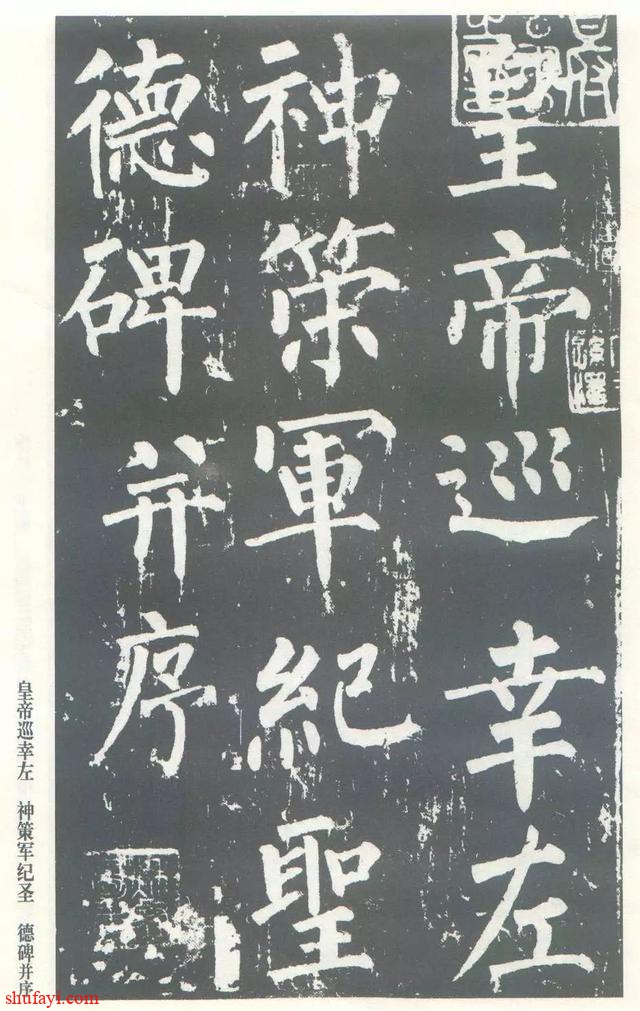 皇帝巡幸左
神策軍紀聖
德碑并序
皇帝巡幸左　神策军纪圣　德碑并序
shufayi.com